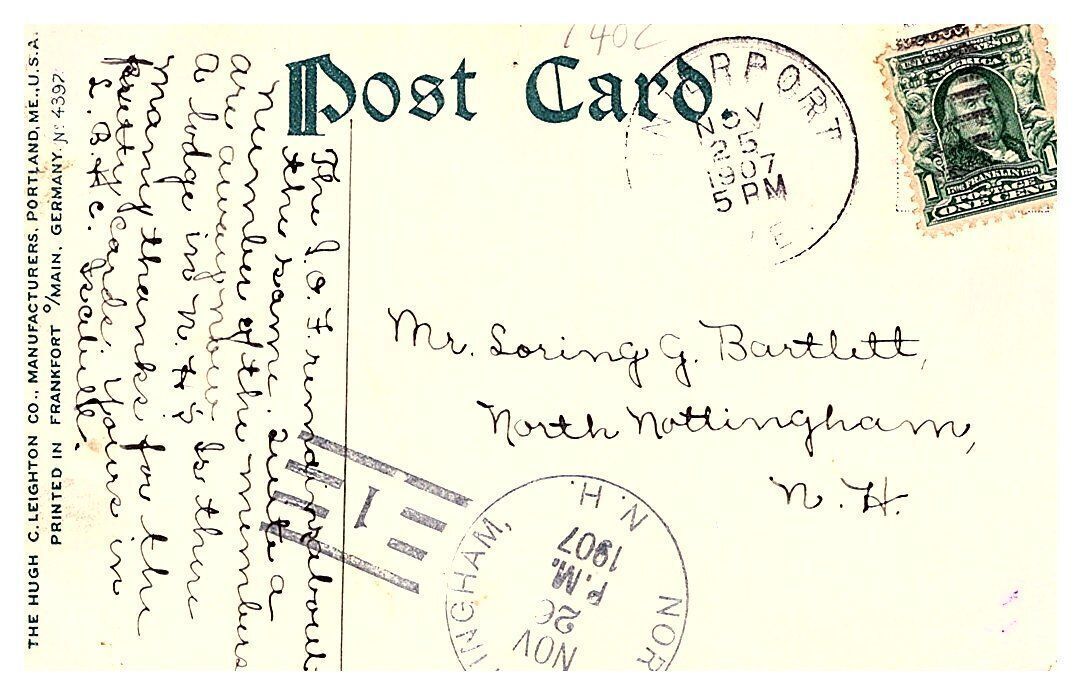 THE HUGH C. LEIGHTON CO., MANUFACTURERS, PORTLAND, ME., U.S.A.
PRINTED IN FRANKFORT O/MAIN, GERMANY. No 4397
Post Card
1402
NOV
25
1907
5 PM
E.
UNITED STATES OF
AMERICA
1706 FRANKLIN 1790
1 POSTAGE 1
ONE CENT
The I.O.F. runs about
the same. Quite a
number of the members
are away now. Is there
a lodge in N. H.?
Many thanks for the
pretty cards. Yours in
L. B. & C.
Mr. Loring G. Bartlett,
North Nottingham,
N. H.
1
NOR
INGHAM,
N. H.
NOV
26
P.M.
1907